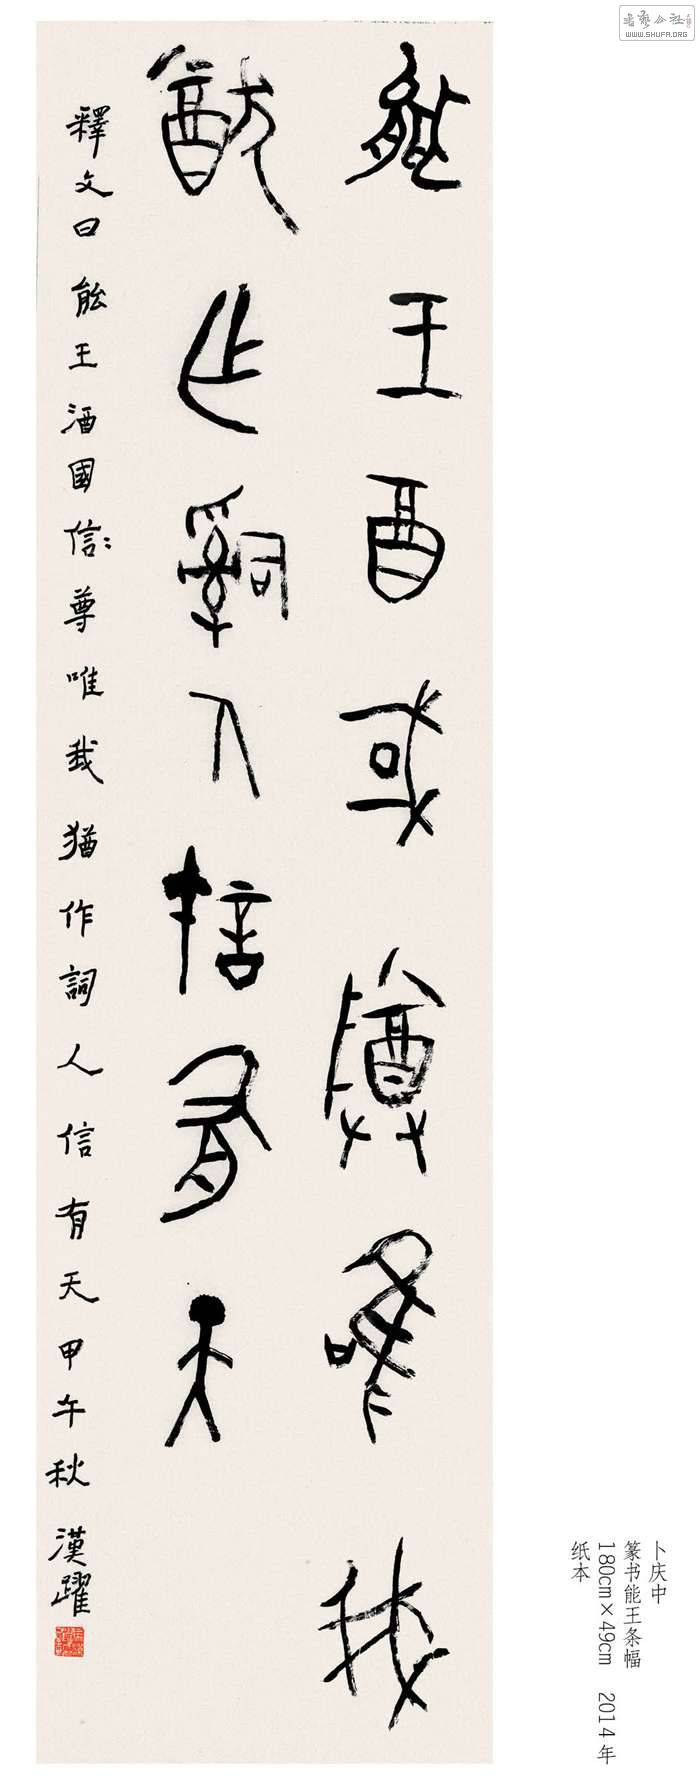 能王酉或尊唯我
猷乍辭人信有天
釋文曰 能王酒國信:尊唯我猶作詞人信有天甲午秋 漢躍
卜庆中
篆书能王条幅
180cm×49cm 2014年
纸本
书艺公社
WWW.SHUFA.ORG